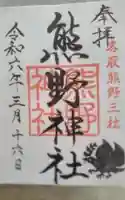 奉拝
熊野三社
熊野神社
熊野神社
令和六年三月十六日